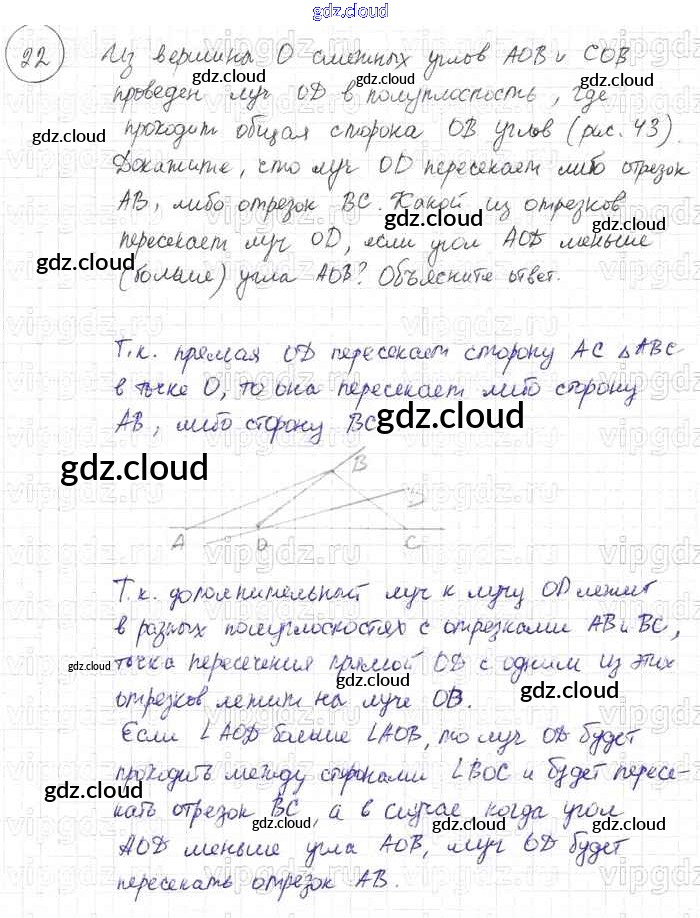 gdz.cloud
22 Из вершина О смежных углов AOB и COB
gdz.cloud gdz.cloud
проведен луч OD в полуплоспость, где
gdz.cloud gdz.cloud
проходит общая сторона OB углов (рис. 43).
Докажите, что луч OD пересекает либо отрезок
AB, либо отрезок BC. Какой из отрезков
gdz.cloud gdz.cloud
пересекает луч OD, если угол AOD меньше
gdz.cloud
(больше) угла AOB? Объясните ответ.
Т.к. прямая OD пересекает сторону AC △ABC
в точке O, то она пересекает либо сторону
AB, либо сторону BC
gdz.cloud
gdz.cloud
B
D
A O C
vipgdz.ru
Т.к. дополнительный луч к лучу OD лежит
в разных полуплоскостях с отрезками AB и BC,
gdz.cloud точка пересечения прямой OD с одним из этих
gdz.cloud gdz.cloud
отрезков лежит на луче OB.
Если ∠AOD больше ∠AOB, то луч OD будет
проходить между сторонами ∠BOC и будет пересе-
gdz.cloud gdz.cloud
кать отрезок BC, а в случае когда угол
gdz.cloud gdz.cloud
AOD меньше угла AOB, луч OD будет
gdz.cloud gdz.cloud
пересекать отрезок AB.